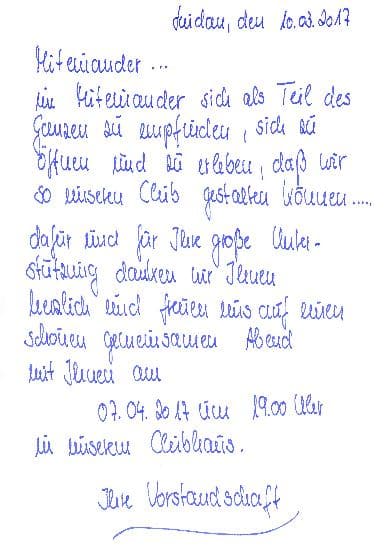 Lindau, den 10.03.2017
Miteinander ...
im Miteinander sich als Teil des
Ganzen zu empfinden, sich zu
öffnen und zu erleben, daß wir
so unseren Club gestalten können.....
dafür und für Ihre große Unter-
stützung danken wir Ihnen
herzlich und freuen uns auf einen
schönen gemeinsamen Abend
mit Ihnen am
07.04.2017 um 19.00 Uhr
in unserem Clubhaus.
Ihre Vorstandschaft